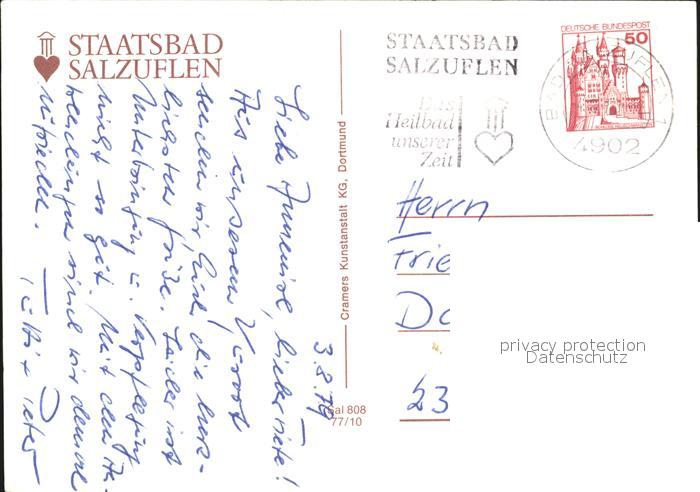 STAATSBAD
SALZUFLEN
STAATSBAD
SALZUFLEN
Das
Heilbad
unserer
Zeit
DEUTSCHE BUNDESPOST
50
BAD SALZUFLEN 1
4902
Cramers Kunstanstalt KG, Dortmund
Sal 808
77/10
3.8.79
Liebe Annemie, lieber
Aus unserem Kurort
senden wir Euch die herz-
lichsten Grüße. Leider ist
Unterbringung u. Verpflegung
nicht so gut. Mit den An-
wendungen sind wir diesmal
zufrieden.
Peter
Herrn
Frie
Do
23
privacy protection
Datenschutz